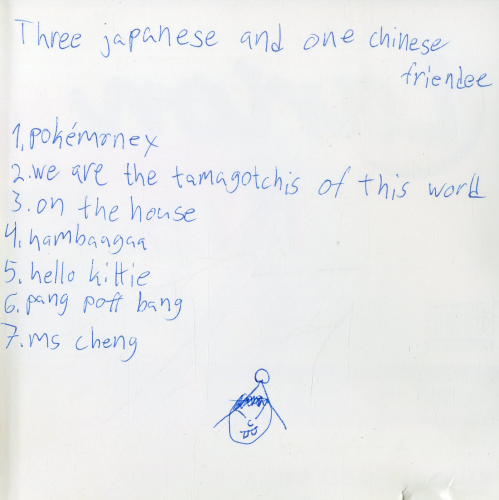 Three japanese and one chinese
friendee
1. pokémonex
2. we are the tamagotchis of this world
3. on the house
4. hambaagaa
5. hello kittie
6. pang poff bang
7. ms cheng